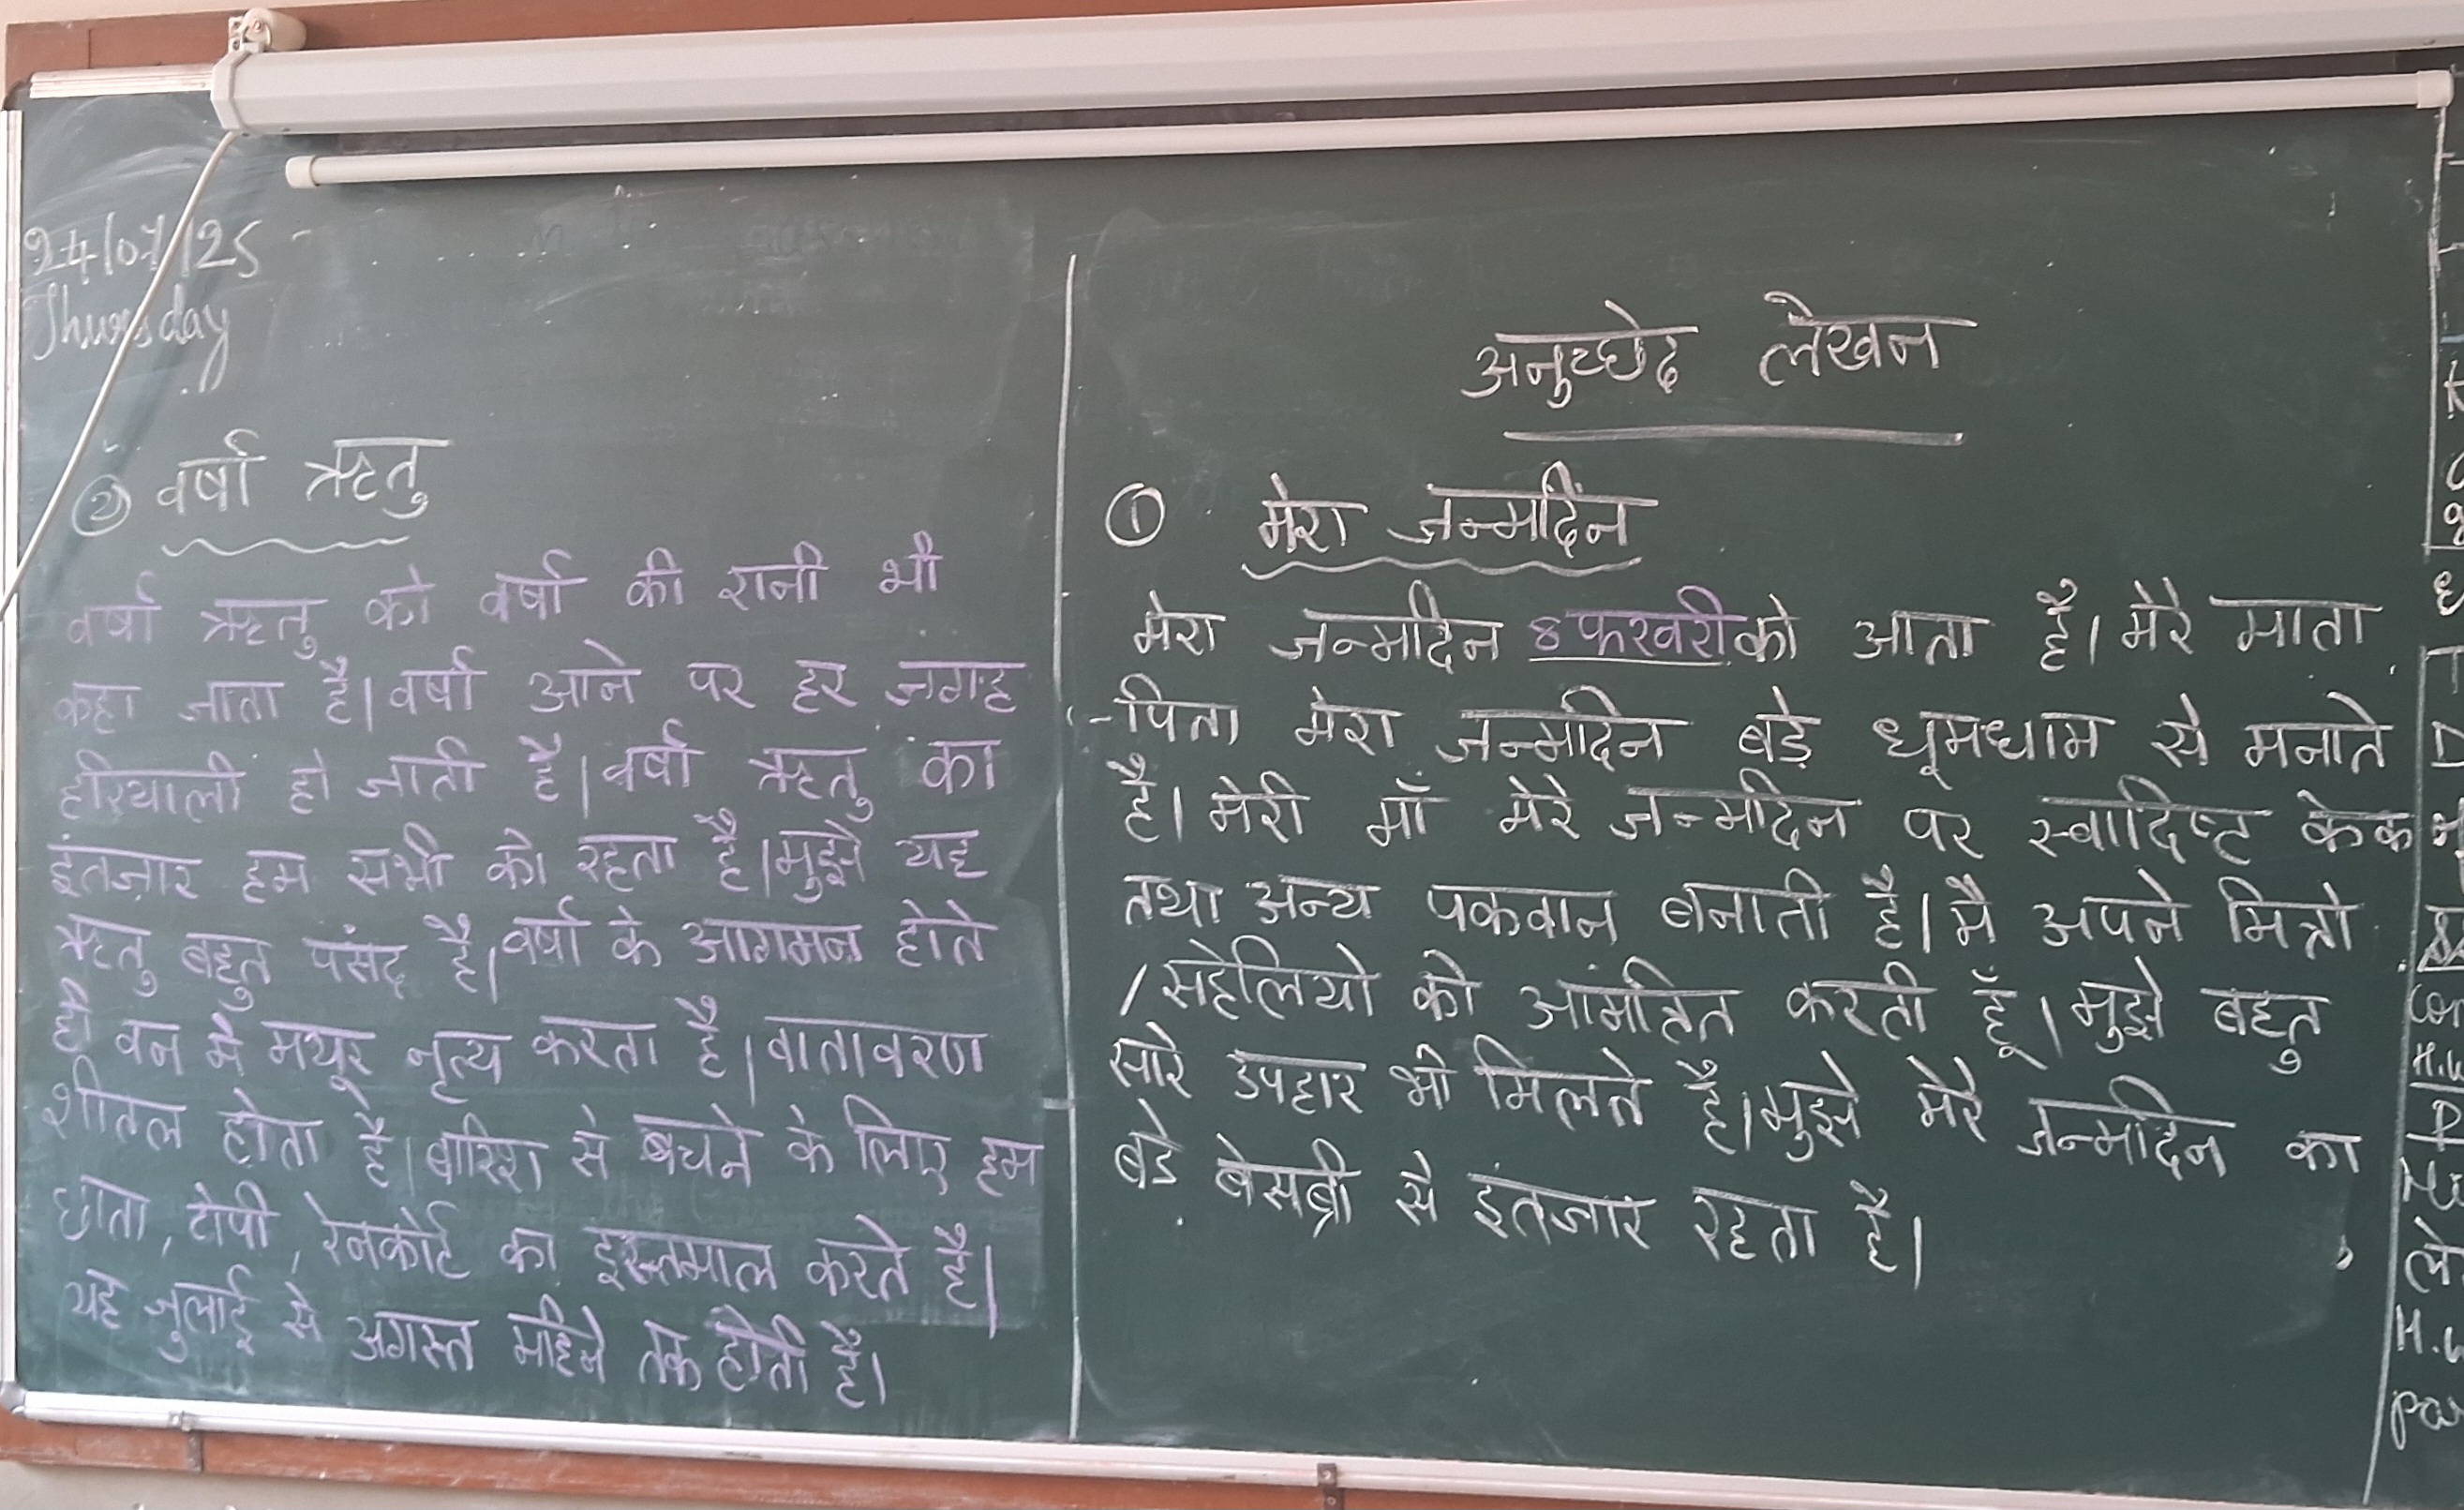 24/07/25
Thursday
अनुच्छेद लेखन
① मेरा जन्मदिन
मेरा जन्मदिन 8 फरवरी को आता है। मेरे माता
-पिता मेरा जन्मदिन बड़े धूमधाम से मनाते
है। मेरी माँ मेरे जन्मदिन पर स्वादिष्ट केक
तथा अन्य पकवान बनाती है। मै अपने मित्रो
/सहेलियो को आमंत्रित करती हूँ। मुझे बहुत
सारे उपहार भी मिलते है। मुझे मेरे जन्मदिन का
बडे बेसब्री से इंतजार रहता है।
② वर्षा ऋतु
वर्षा ऋतु को वर्षा की रानी भी
कहा जाता है। वर्षा आने पर हर जगह
हरियाली हो जाती है। वर्षा ऋतु का
इंतज़ार हम सभी को रहता है। मुझे यह
ऋतु बहुत पसंद है। वर्षा के आगमन होते
ही वन मे मयूर नृत्य करता है। वातावरण
शीतल होता है। बारिश से बचने के लिए हम
छाता, टोपी, रेनकोर्ट का इस्तमाल करते है।
यह जुलाई से अगस्त महिने तक होती है।